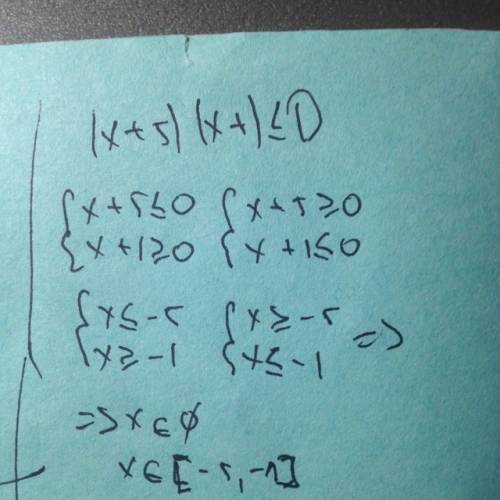 (x+5)(x+)≤0
{x+5≤0 {x+5≥0
{x+1≥0 {x+1≤0
{x≤-5 {x≥-5
{x≥-1 {x≤-1 =>
=>x∈∅
x∈[-5,-1]